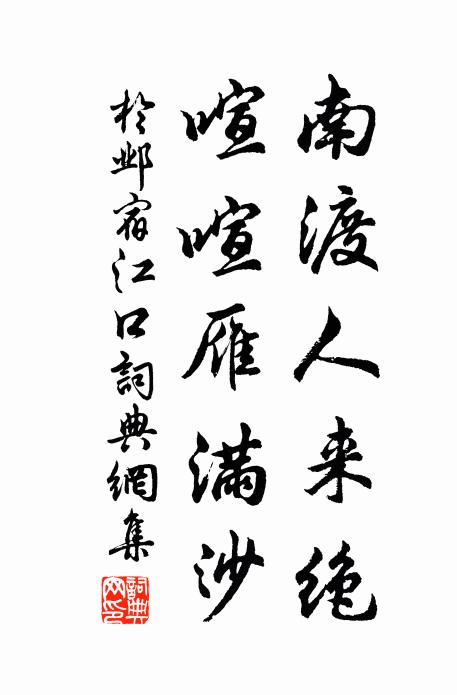 南渡人来绝
喧喧雁满沙
於邺宿江口詞典網集
詞典网印